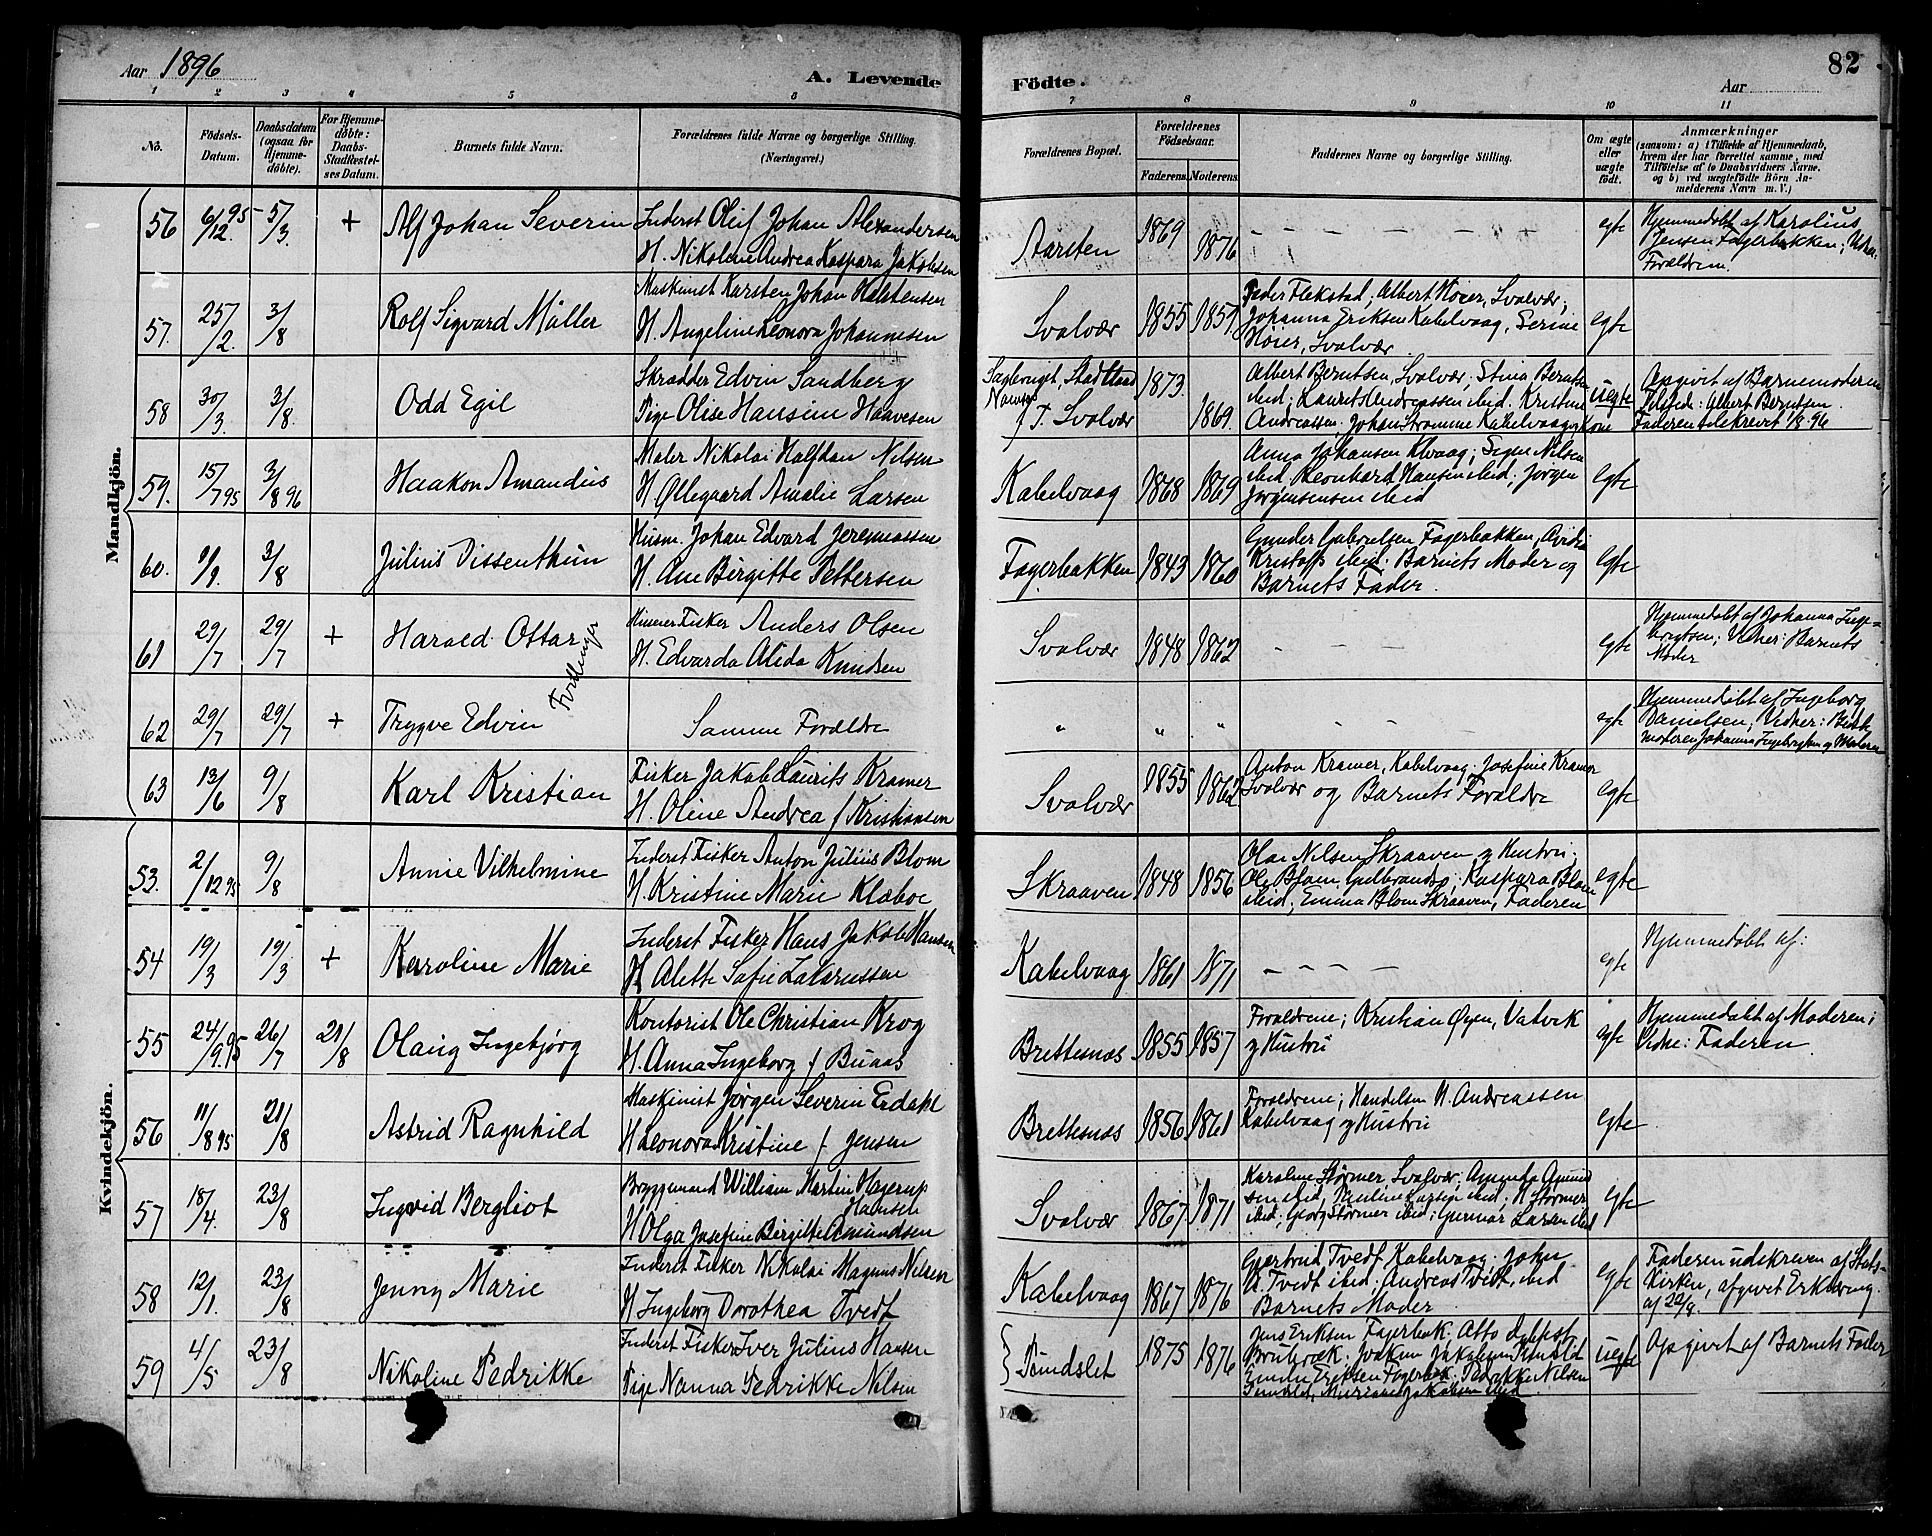 Aar 1896
A. Levende
Födte.
Aar
82
1 2 3 4 5 6 7 8 9 10 11
No.
Födsels-Datum.
Daabsdatum (ogsaa for Hjemmedöbte).
For Hjemmedöbte: Daabs-Stadfæstelses Datum.
Barnets fulde Navn.
Forældrenes fulde Navne og borgerlige Stilling.
(Næringsvei.)
Forældrenes Bopæl.
Forældrenes Födselsaar.
Faderens. Moderens.
Faddernes Navne og borgerlige Stilling.
Om ægte eller uægte födt.
Anmærkninger
(saasom: a) i Tilfælde af Hjemmedaab, hvem der har forrettet samme, med Tilföielse af to Daabsvidners Navne, og b) ved uægtefödte Börn Anmelderens Navn m. V.)
Mandkjön.
56 6/12 95 5/3 + Alf Johan Severin
Inderst Oleif Johan Alexandersen
H. Nikolene Andrea Kaspara Jakobsen
Aarsten 1869 1876 egte
Hjemmedøbt af Karolius
Jensen Fagerbakken; Vidne:
Forældrene.
57. 25/2. 3/8 Rolf Sigvard Møller
Maskinist Karsten Johan Halstensen
H. Angeline Leonora Johannesen
Svolvær 1855 1857
Peder Flekstad, Albert Høier, Svolvær;
Johanna Eriksen Kabelvaag, Serine
Høier, Svolvær
egte
58 30/3. 3/8. Odd Egil
Skrædder Edvin Sandberg
Pige Olise Hansine Haavesen
Sagbruget,
Namsos
f. T. Svolvær
1873. 1869.
Albert Berntsen, Svolvær; Stina Berntsen
ibid; Laurits Andreassen ibid, Kristine
Andreassen; Johan Strømme Kabelvaag og Kone
uegte
Opgivet af Barnemoderen
Albert Berntsen.
Faderen tilskrevet 1/8 96
59. 15/7 95 3/8 96 Haakon Amandus
Maler Nikolai Halfdan Nilsen
H. Øllegaard Amalie Larsen
Kabelvaag 1868 1869
Anna Johansen Kvaag; Signe Nilsen
ibid, Leonhard Hansen ibid; Jørgen
Jørgensen ibid
egte
60. 3/8 Julius Dissenthun
Husm. Johan Edvard Jeremiassen
H. Ane Birgitte Pettersen
Fagerbakken 1843 1860
Gunder Gabrielsen Fagerbakken,
Kristoffs ibid; Barnets Moder og
Barnets Fader.
egte
61 29/7 29/7 + Harald Ottar
Tvillinger
Fisker Anders Olsen
H. Edvarda Alida Knudsen
Svolvær 1848 1862 egte
Hjemmedøbt af Johanna Inge-
brigtsen; Vidner: Barnets
Moder
62 29/7 29/7 + Trygve Edvin
Samme Forældre
" " " egte
Hjemmedøbt af Ingeborg
Danielsen; Vidner:
moderen Johanna Ingebrigtsen og Moderen
63 13/6 9/8 Karl Kristian
Fisker Jakob Laurits Kramer
H. Oline Andrea f. Kristiansen
Svolvær 1855 1862
Anton Kramer, Kabelvaag; Josefine Kramer
Svolvær og Barnets Forældre
egte
Kvindekjön.
53. 2/12 95 9/8 Annie Vilhelmine
Inderst Fisker Anton Julius Blom
H. Kristine Marie Klæboe
Skraaven 1848 1856
Olai Nilsen Skraaven og Hustru;
Ole Blom, Gulbrandsø; Kaspara Blom
ibid; Emma Blom Skraaven, Faderen
egte
54 19/3 19/3 + Karoline Marie
Inderst Fisker Hans Jakob Hansen
H. Alette Sofie Zakariassen
Kabelvaag 1861 1871 egte
Hjemmedøbt af:
55 24/9. 95 26/7 21/8 Olaug Ingebjørg
Kontorist Ole Christian Krog
H. Anna Ingeborg f Buaas
Brettesnæs 1855 1857
Forældrene; Kristian Øyen, Vatvik
og Hustru
egte
Hjemmedøbt af Moderen;
Vidne: Faderen.
56 11/8 95 21/8 Astrid Ragnhild
Maskinist Jørgen Severin Erdahl
H Leonora Kristine f Jensen
Brettesnæs 1856 1861
Forældrene; Handelsm N. Andreassen
Kabelvaag og Hustru
egte
57 18/4. 23/8 Ingvid Bergliot
Bryggemand William Martin Hagerup
Hansen
H Olga Josefine Birgitte Amundsen
Svolvær 1867 1871
Karoline Størmer, Svolvær; Amunda Amund
sen ibid, Pauline Larsen ibid; N Størmer
ibid; Georg Størmer ibid; Gunnar Larsen ibid
egte
58 12/1. 23/8 Jenny Marie
Inderst Fisker Nikolai Magnus Nilsen
H Ingeborg Dorothea Tvedt
Kabelvaag 1867 1876
Gjertrud Tvedt Kabelvaag; John
A. Tvedt ibid; Andreas Tvedt, ibid
Barnets Moder
egte
Faderen udskreven af Stats-
Kirken, afgivet Erklæring
af 22/8.
59 4/5 23/8 Nikoline Pedrikke
Inderst Fisker Iver Julius Hansen
Pige Nanna Pedrikke Nilsen
Pundslet 1875 1876
Jens Eriksen Fagerbak; Otto
Joakim Jakobsen Pundslet
Eriksen Fagerbak; Pedrikke Nilsen
Pundslet, Mariane Jakobsen ibid
uegte
Opgivet af Barnets Fader